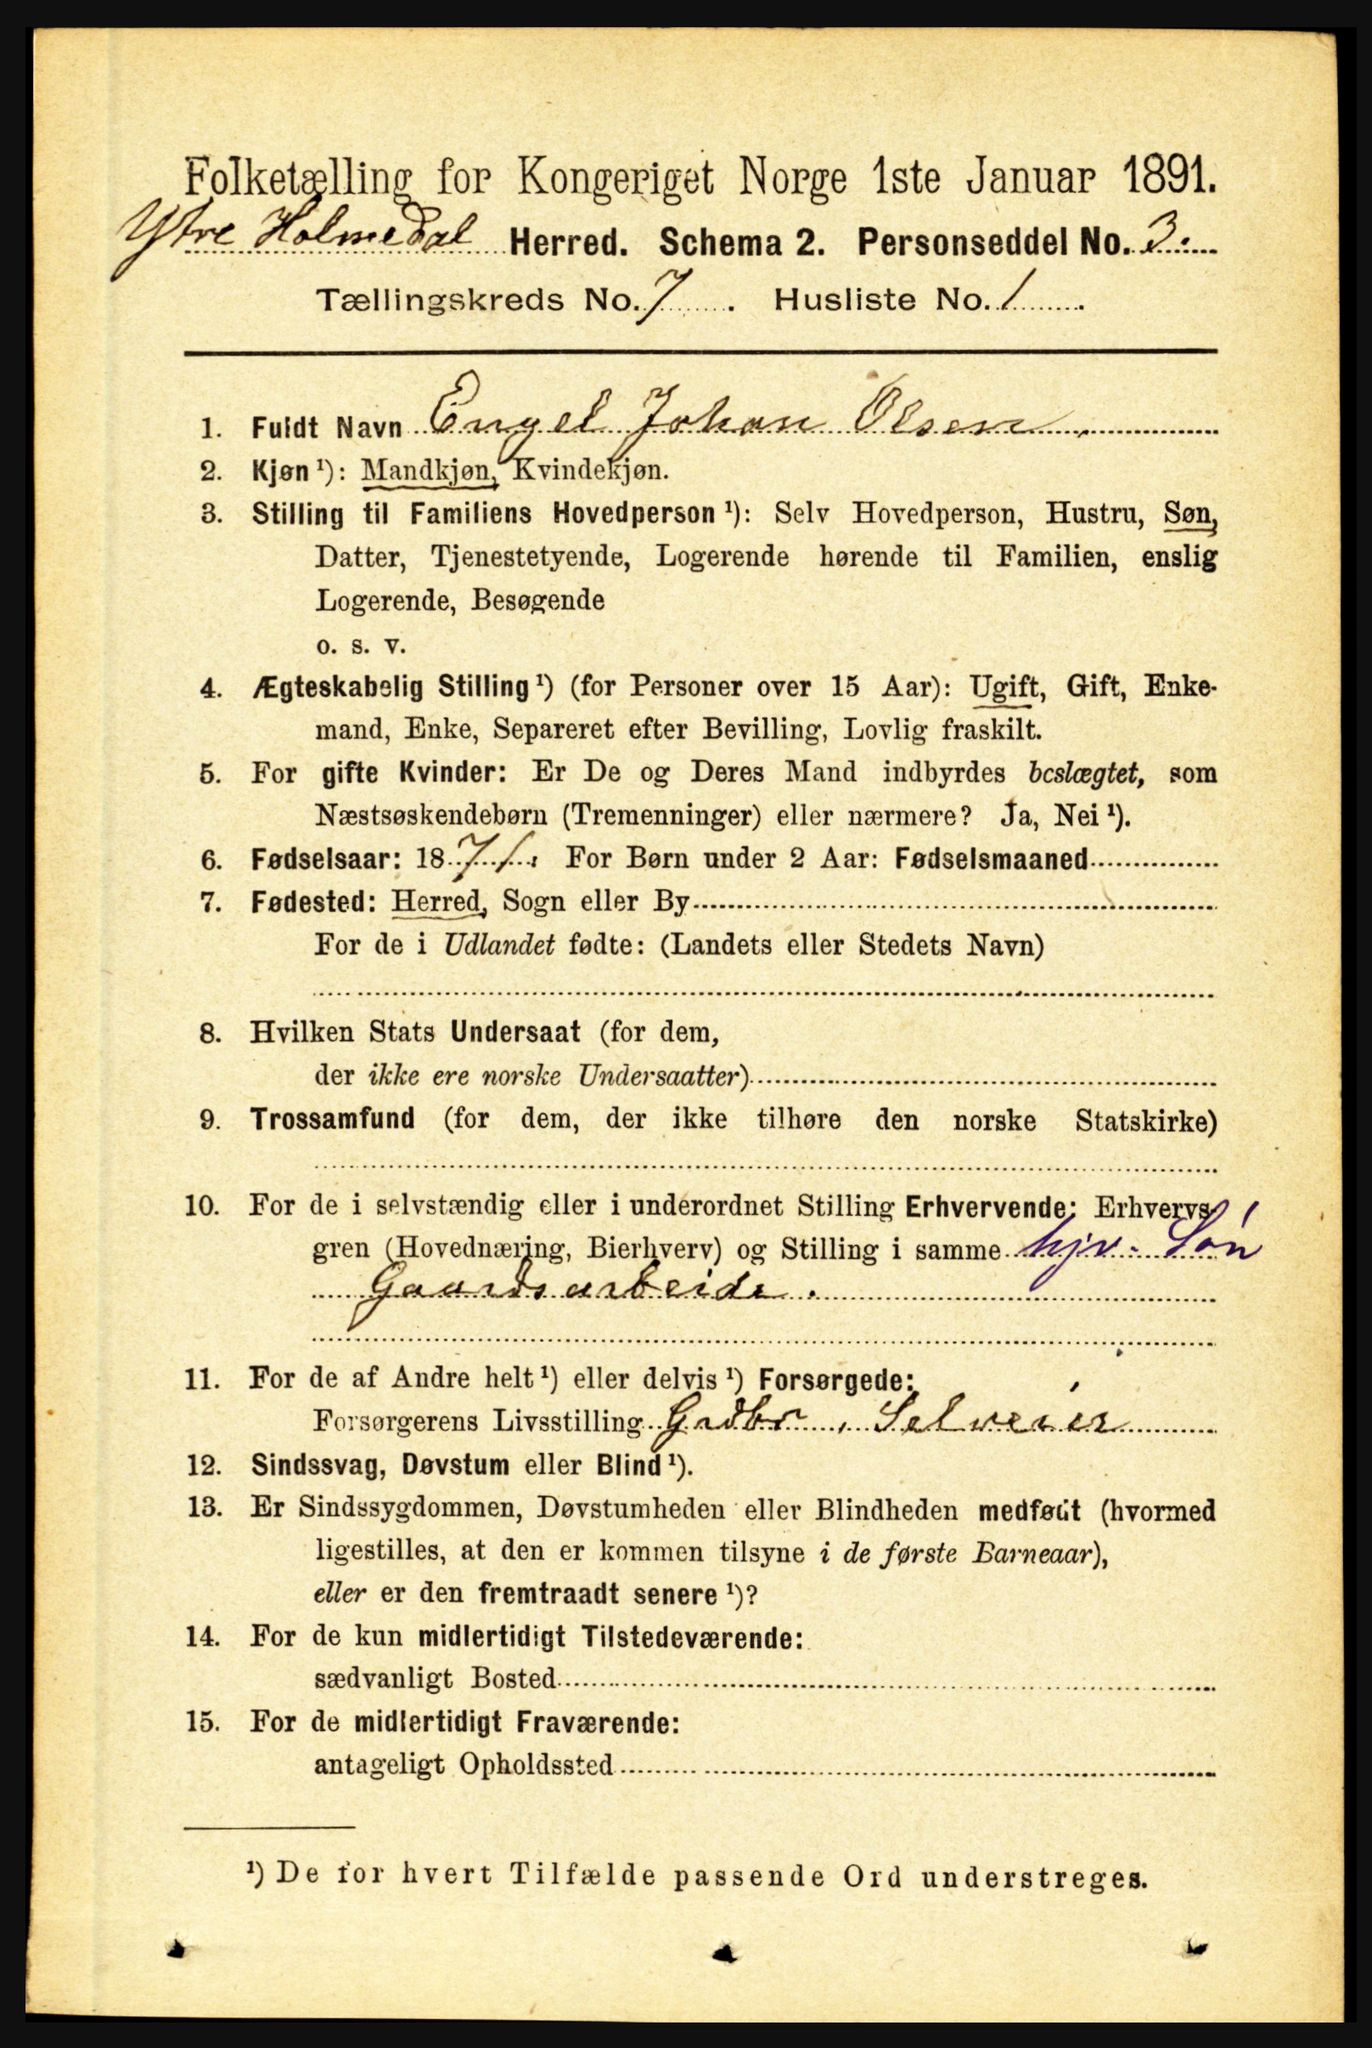 Folketælling for Kongeriget Norge 1ste Januar 1891.
Ytre Holmedal Herred. Schema 2. Personseddel No. 3.
Tællingskreds No. 7. Husliste No. 1.
1. Fuldt Navn Engel Johan Olsen.
2. Kjøn ¹): Mandkjøn, Kvindekjøn.
3. Stilling til Familiens Hovedperson ¹): Selv Hovedperson, Hustru, Søn,
Datter, Tjenestetyende, Logerende hørende til Familien, enslig
Logerende, Besøgende
o. s. v.
4. Ægteskabelig Stilling ¹) (for Personer over 15 Aar): Ugift, Gift, Enke-
mand, Enke, Separeret efter Bevilling, Lovlig fraskilt.
5. For gifte Kvinder: Er De og Deres Mand indbyrdes beslægtet, som
Næstsøskendebørn (Tremenninger) eller nærmere? Ja, Nei ¹).
6. Fødselsaar: 1871. For Børn under 2 Aar: Fødselsmaaned
7. Fødested: Herred, Sogn eller By
For de i Udlandet fødte: (Landets eller Stedets Navn)
8. Hvilken Stats Undersaat (for dem,
der ikke ere norske Undersaatter)
9. Trossamfund (for dem, der ikke tilhøre den norske Statskirke)
10. For de i selvstændig eller i underordnet Stilling Erhvervende: Erhvervs-
gren (Hovednæring, Bierhverv) og Stilling i samme hjv. Søn
Gaardsarbeide.
11. For de af Andre helt ¹) eller delvis ¹) Forsørgede:
Forsørgerens Livsstilling Grdbr, Selveier
12. Sindssvag, Døvstum eller Blind ¹).
13. Er Sindssygdommen, Døvstumheden eller Blindheden medfødt (hvormed
ligestilles, at den er kommen tilsyne i de første Barneaar),
eller er den fremtraadt senere ¹)?
14. For de kun midlertidigt Tilstedeværende:
sædvanligt Bosted
15. For de midlertidigt Fraværende:
antageligt Opholdssted
¹) De for hvert Tilfælde passende Ord understreges.